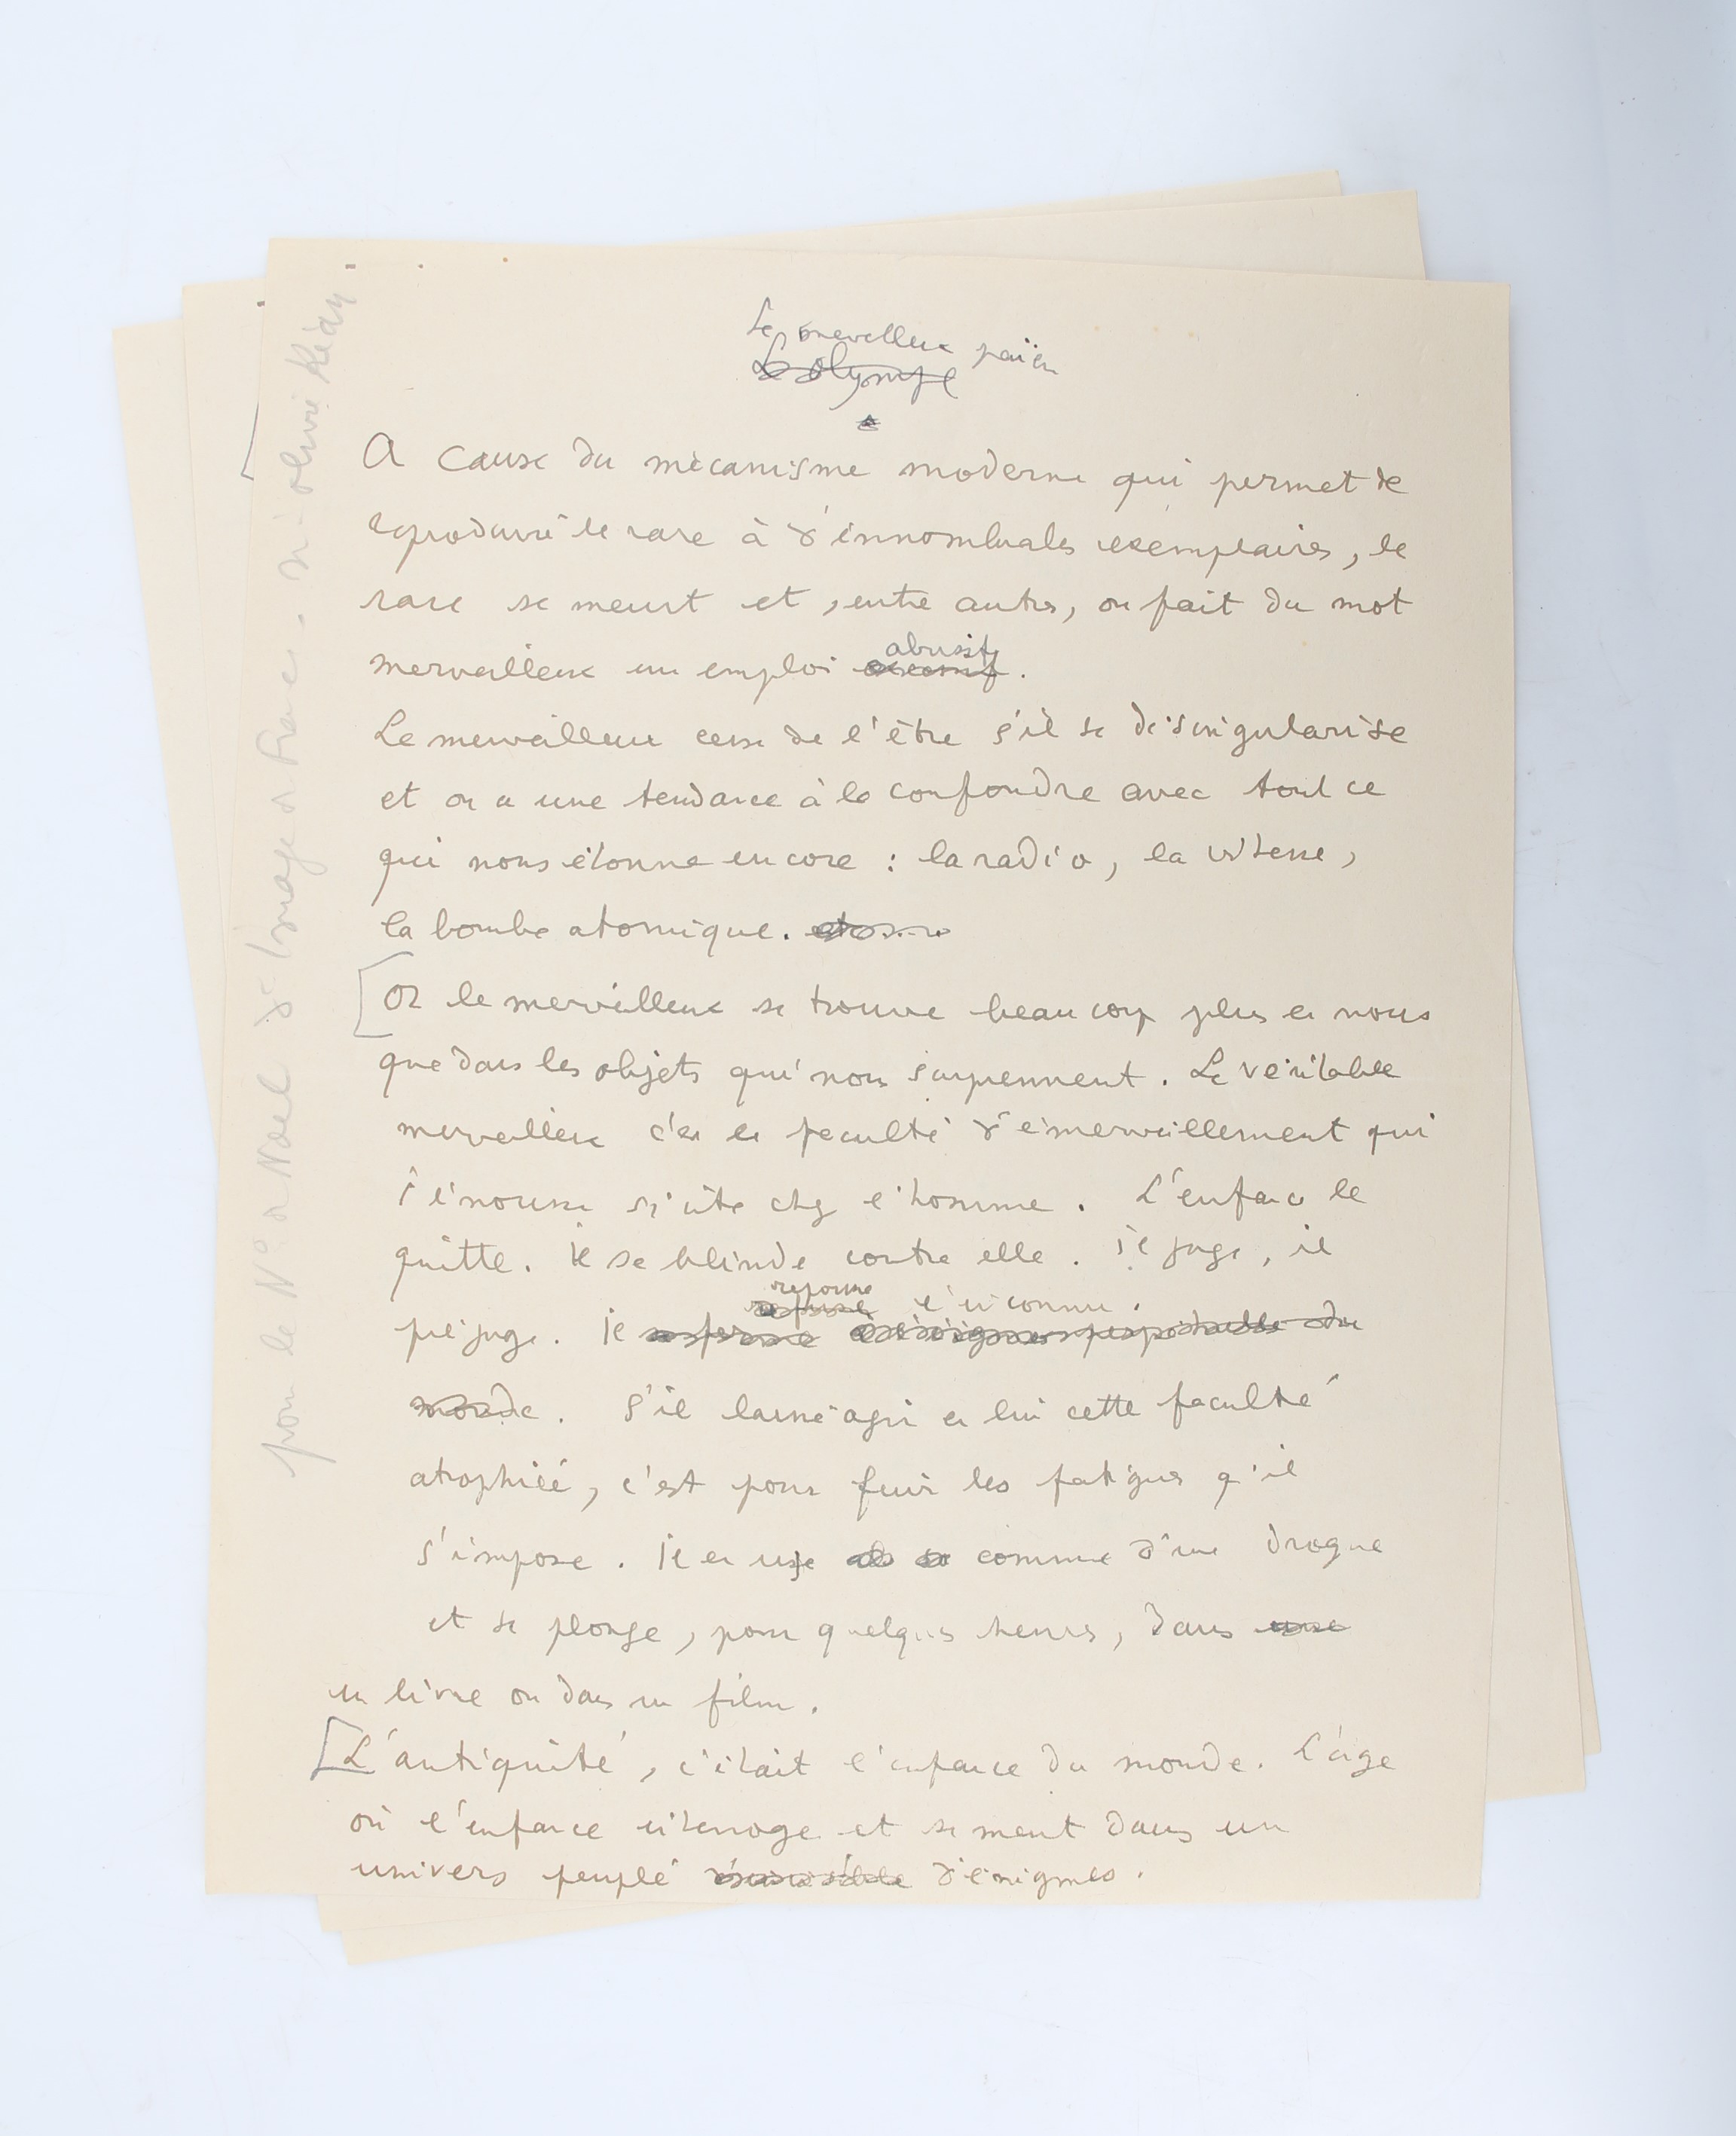 Le merveilleux païen
L'olympe
A cause du mécanisme moderne qui permet de
reproduire le rare à d'innombrables exemplaires, le
rare se meurt et, entre autres, on fait du mot
merveilleux un emploi abusif.
Le merveilleux cesse de l'être s'il se désingularise
et on a une tendance à le confondre avec tout ce
qui nous étonne encore : la radio, la vitesse,
la bombe atomique. etc
Or le merveilleux se trouve beaucoup plus en nous
que dans les objets qui nous surprennent. Le véritable
merveilleux c'est la faculté d'émerveillement qui
s'émousse si vite chez l'homme. L'enfance le
quitte. Il se blinde contre elle. Il juge, il
préjuge. Il repousse l'inconnu.
monde. S'il laisse agir en lui cette faculté
atrophiée, c'est pour fuir les fatigues qu'il
s'impose. Il en use comme d'une drogue
et se plonge, pour quelques heures, dans une
un livre ou dans un film.
L'antiquité, c'était l'enfance du monde. L'âge
où l'enfance interroge et se meut dans un
univers peuplé d'énigmes.
pour le N° de Noël d'Image de France